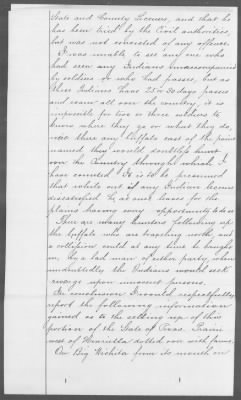 State and County Licenses, and that he
has been tried by the Civil authorities,
but was not convicted of any offense.
I was unable to see any one who
had seen any Indians unaccompanied
by soldiers or who had passes, but as
these Indians have 25 or 30 days passes
and roam all over the country, it is
impossible for two or three soldiers to
know where they go or what they do,
were there any Buffalo east of the point
named, they would doubtless hunt
over the Country through which I
have scouted. It is to be presumed
that while out if any Indian becomes
dissatisfied he at once leaves for the
plains having every opportunity to do so.
There are many hunters following up
the buffalo who are traveling north, and
a collision could at any time be brought
on, by a bad man of either party, when
undoubtedly the Indians would seek
revenge upon innocent persons.
In conclusion I would respectfully
report the following information
gained as to the settling up of this
portion of the State of Texas. Prairie
west of Henrietta dotted over with farms.
On Big Wichita from its mouth on